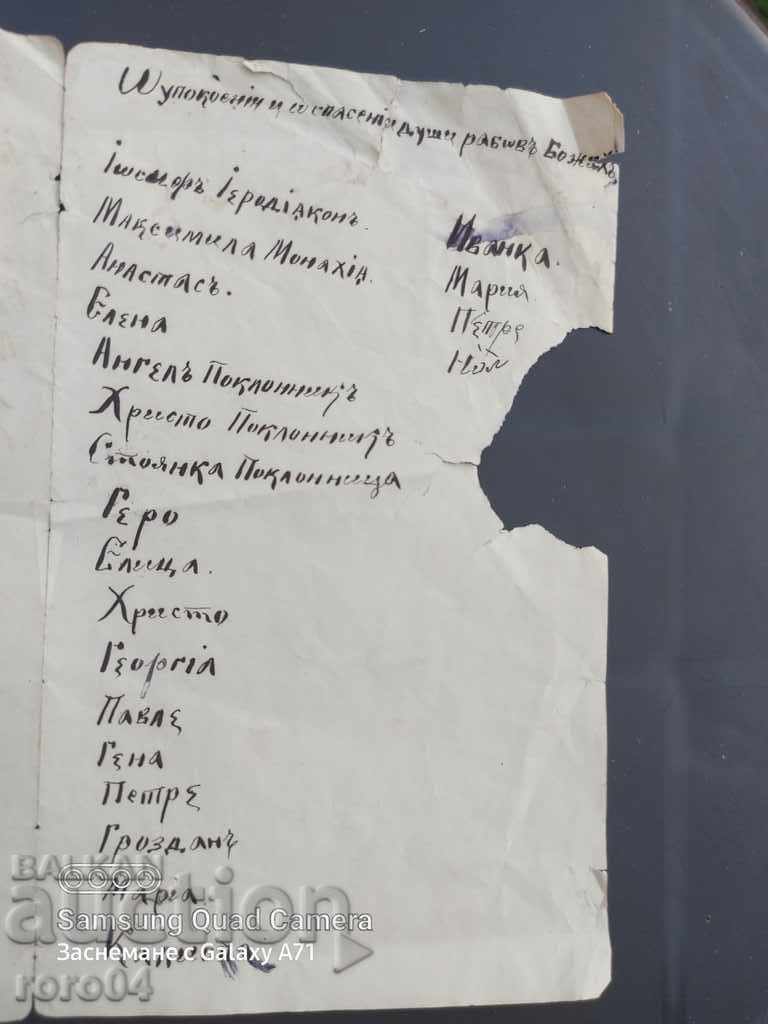 Ѡ упокоенїи и ѡ спасенїи души рабѡвъ Божїихъ
Іѡсифъ Іеродїаконъ.
Максимила Монахїа.
Анастасъ.
Елена
Ангелъ Поклонникъ
Христо Поклонникъ
Стоянка Поклонница
Геро
Елица.
Христо
Георгіа
Павле
Гена
Петре
Грозданъ
Маріа.
Иванка.
Мария
Петре
BALKAN
auction
Samsung Quad Camera
Заснемане с Galaxy A71
roro04